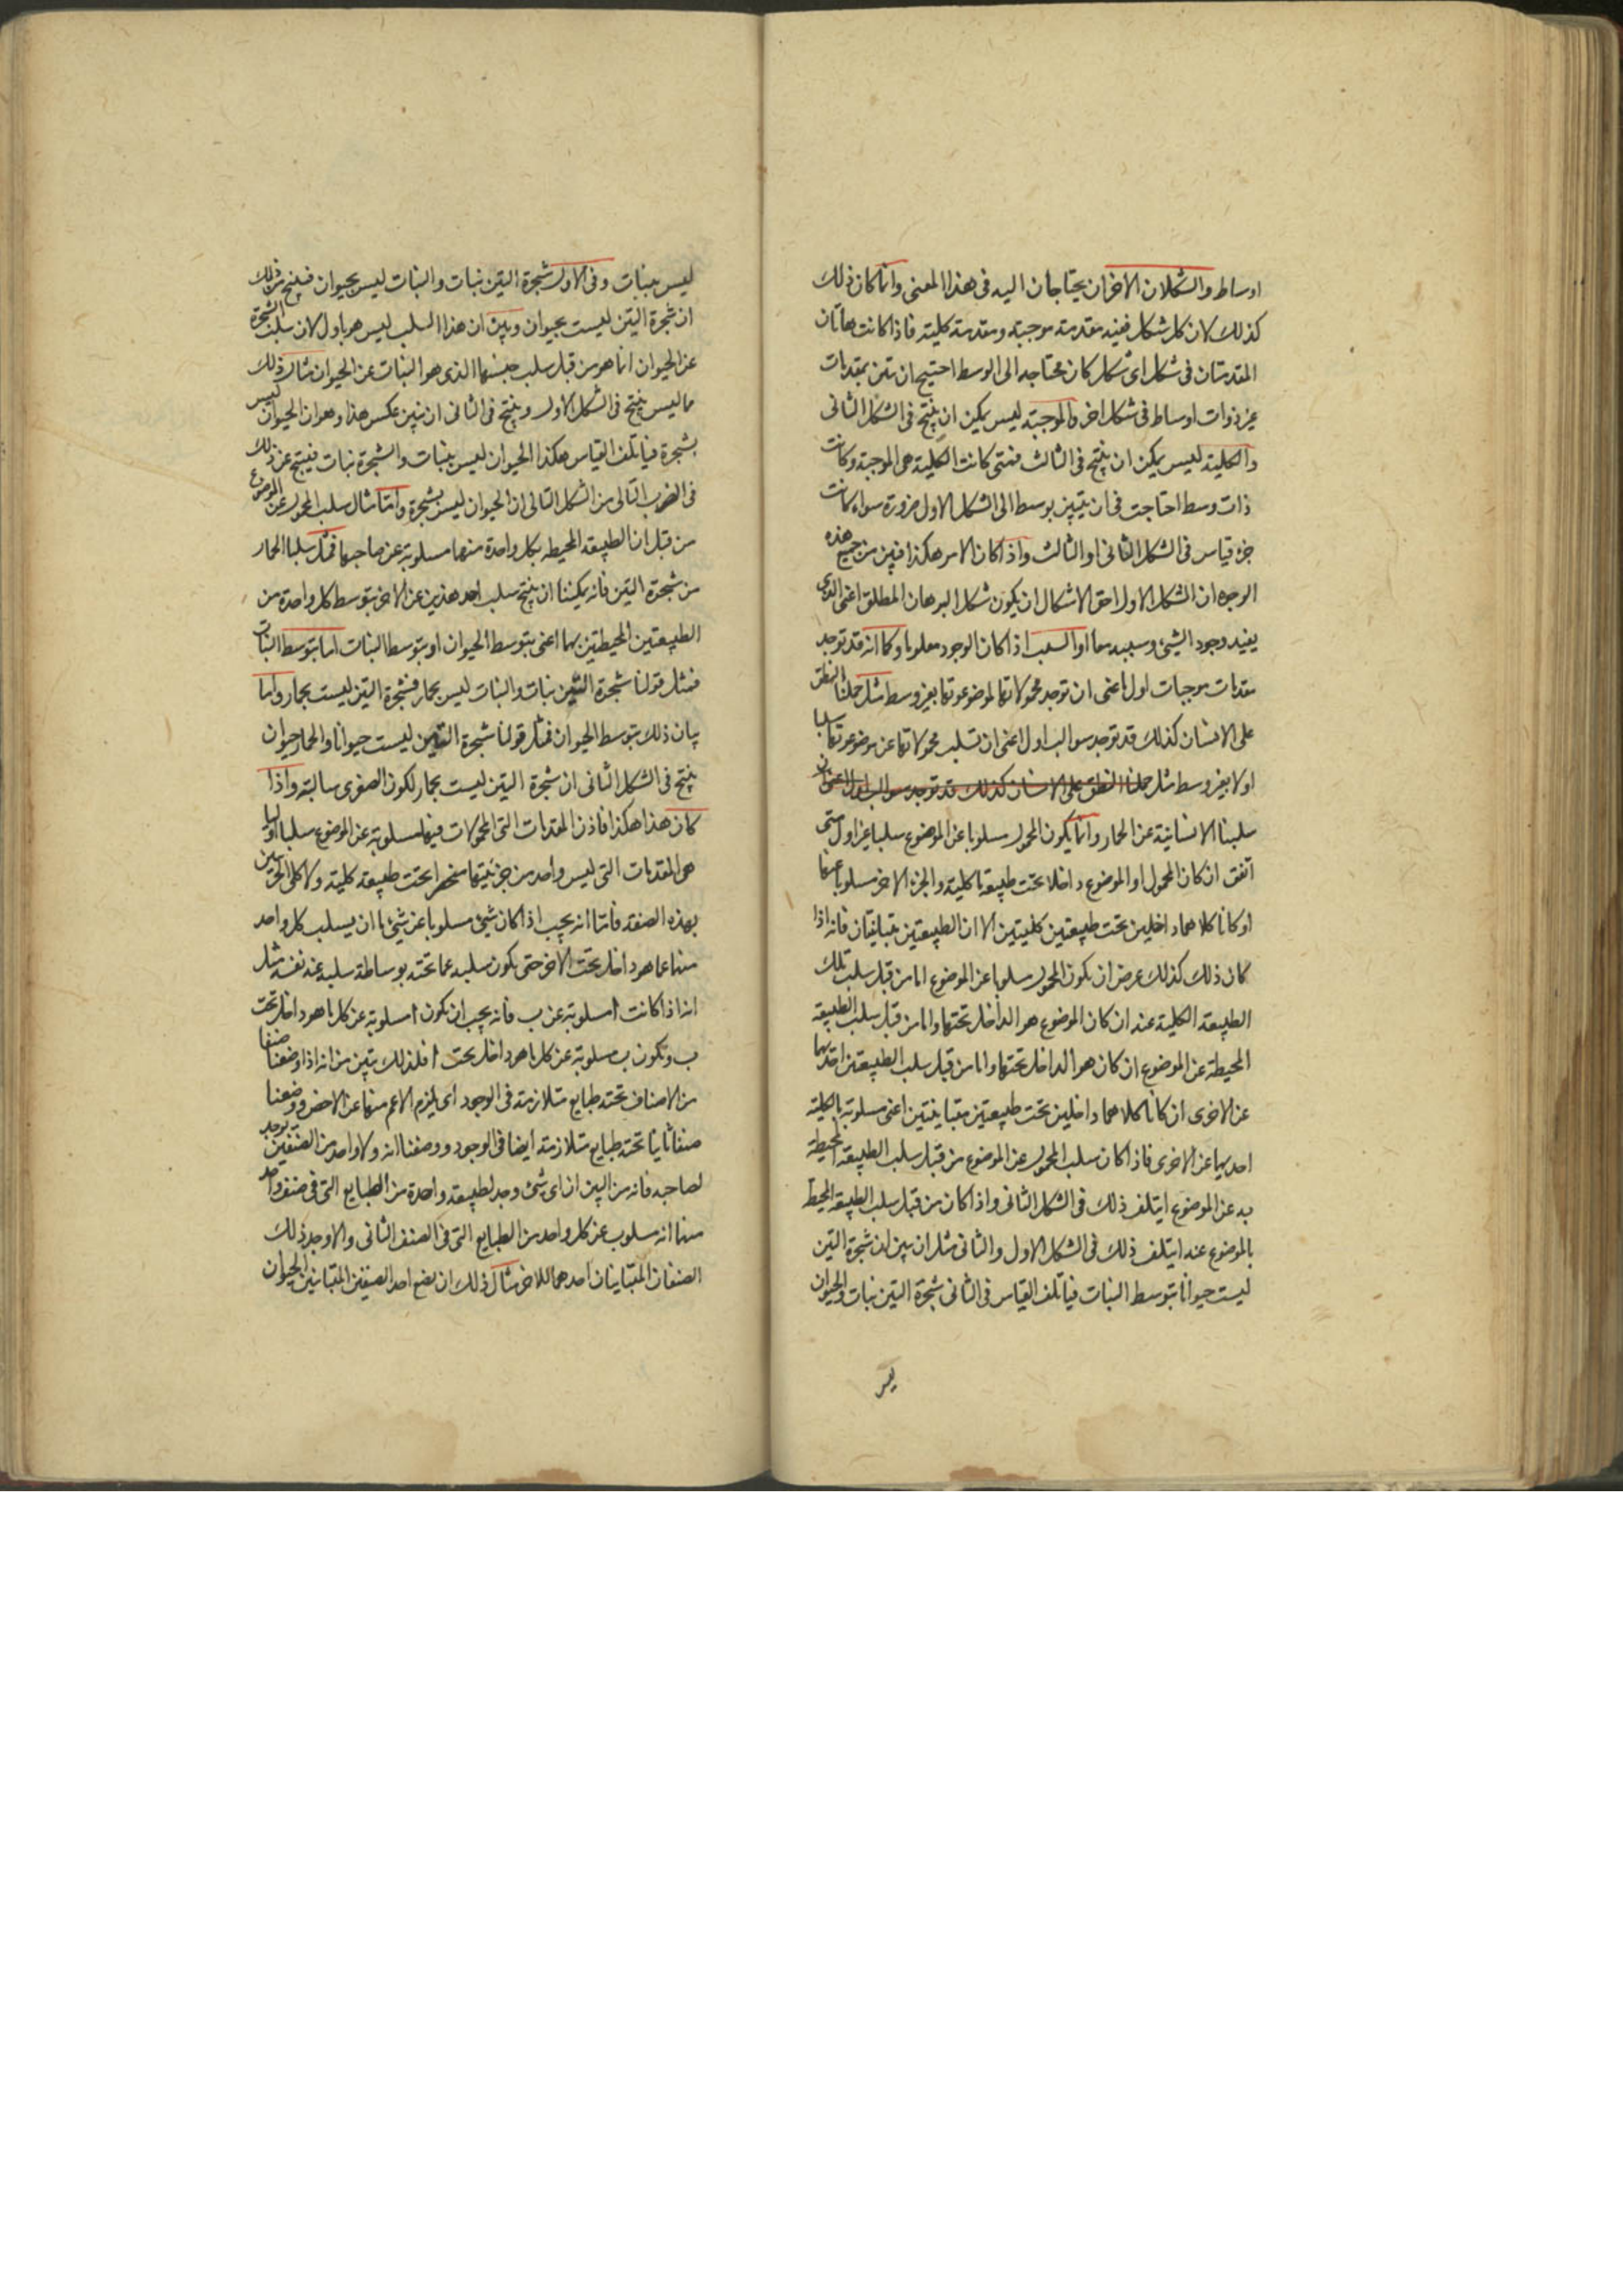 اوساط والشكلان الاخران يحتاجان اليه فى هذا المعنى وانما كان ذلك
كذلك لان كل شكل ففيه مقدمة موجبة ومقدمة كلية فاذا كانت هاتان
المقدمتان فى شكل اى شكل كان محتاجه الى الوسط احتيج ان تبين بمقدمات
غير ذوات اوساط فى شكل اخر والموجبة ليس يمكن ان ينتج فى الشكل الثانى
والكلية ليس يمكن ان ينتج فى الثالث فمتى كانت الكلية هى الموجبة وكانت
ذات وسط احتاجت فى ان يتبين بوسط الى الشكل الاول ضرورة سواء كانت
جزء قياس فى الشكل الثانى او الثالث واذا كان الامر هكذا فبين من جميع هذه
الوجوه ان الشكل الاول احق الاشكال ان يكون شكل البرهان المطلق اعنى الذى
يفيد وجود الشيئ وسببه معا او السبب اذا كان الوجود معلوما وكما انه قد توجد
مقدمات موجبات اول اعنى ان توجد محمولاتها لموضوعوتها بغير وسط مثل حملنا النطق
على الانسان كذلك قد توجد سوالب اول اعنى ان تسلب محمولاتها عن موضوعوتها سلبا
اولا بغير وسط مثل حملنا النطق على الانسان كذلك قد توجد سوالب اول اعنى ان
سلبنا الانسانية عن الحمار وانما يكون المحمول مسلوبا عن الموضوع سلبا غير اول متى
اتفق ان كان المحمول او الموضوع داخلا تحت طبيعة ما كلية والجزء الاخر مسلوبا عنها
او كانا كلاهما داخلين تحت طبيعتين كليتين الا ان الطبيعتين متباينتان فانه اذا
كان ذلك كذلك عرض ان يكون المحمول مسلوبا عن الموضوع اما من قبل سلب تلك
الطبيعة الكلية عنه ان كان الموضوع هو الداخل تحتها واما من قبل سلب الطبيعة
المحيطة عن الموضوع ان كان هو الداخل تحتها واما من قبل سلب الطبيعتين احديهما
عن الاخرى ان كانا كلاهما داخلين تحت طبيعتين متباينتين اعنى مسلوبة بالكلية
احديهما عن الاخرى فاذا كان سلب المحمول عن الموضوع من قبل سلب الطبيعة المحيطة
به عن الموضوع ايتلف ذلك فى الشكل الثانى واذا كان من قبل سلب الطبيعة المحيط
بالموضوع عنه ايتلف ذلك فى الشكل الاول والثانى مثل ان نبين ان شجرة التين
ليست حيوانا بتوسط النبات فياتلف القياس فى الثانى شجرة التين نبات والحيوان
ليس
ليس بنبات وفى الاول شجرة التين نبات والنبات ليس بحيوان فينتج من ذلك
ان شجرة التين ليست بحيوان وبين ان هذا السلب ليس هو باول لان سلب الشجرة
عن الحيوان انما هو من قبل سلب جنسها الذى هو النبات عن الحيوان مثال ذلك
ما ليس ينتج فى الشكل الاول وينتج فى الثانى ان نبين عكس هذا وهو ان الحيوان ليس
بشجرة فياتلف القياس هكذا الحيوان ليس بنبات والشجرة نبات فينتج عن ذلك
فى الضرب الثانى من الشكل الثانى ان الحيوان ليس بشجرة واما مثال سلب المحمول عن الموضوع
من قبل ان الطبيعة المحيطه بكل واحدة منهما مسلوبة عن صاحبها فمثل سلبنا الحمار
من شجرة التين فانه يمكننا ان ننتج سلب احد هذين عن الاخر بتوسط كل واحدة من
الطبيعتين المحيطتين بهما اعنى بتوسط الحيوان او بتوسط النبات اما بتوسط النبات
فمثل قولنا شجرة التين نبات والنبات ليس بحمار فشجرة التين ليست بحمار واما
بيان ذلك بتوسط الحيوان فمثل قولنا شجرة التين ليست حيوانا والحمار حيوان
ينتج فى الشكل الثانى ان شجرة التين ليست بحمار لكون الصغرى سالبة واذا
كان هذا هكذا فاذن المقدمات التى المحمولات فيها مسلوبة عن الموضوع سلبا اوليا
هى المقدمات التى ليس واحد من جزئيتها منحصرا تحت طبيعة كلية ولا كلى الجزئين
بهذه الصفة فاما انه يجب اذا كان شيئ مسلوبا عن شيئ ما ان يسلب كل واحد
منهما عما هو داخل تحت الاخر حتى يكون سلبه عما تحته بوساطة سلبه عنه نفسه مثل
انه اذا كانت ا مسلوبة عن ب فانه يجب ان يكون ا مسلوبة عن كل ما هو داخل تحت
ب وتكون ب مسلوبة عن كل ما هو داخل تحت ا فلذلك يتبين من انه اذا وضعنا صنفا
من الاصناف تحته طبايع متلازمة فى الوجود اى يلزم الاعم منها عن الاخص ووضعنا
صنفا ثانيا تحته طبايع متلازمة ايضا فى الوجود ووصفنا انه ولا واحد من الصنفين يوجد
لصاحبه فانه من البين ان اى شئ وجد لطبيعة واحدة من الطبايع التى فى صنف واحد
منهما انه مسلوب عن كل واحد من الطبايع التى فى الصنف الثانى والا وجد ذلك
الصنفان المتباينان احدهما للاخر مثال ذلك ان نضع احد الصنفين المتباينين الحيوان